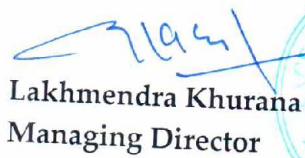 Lakhmendra Khurana
Managing Director